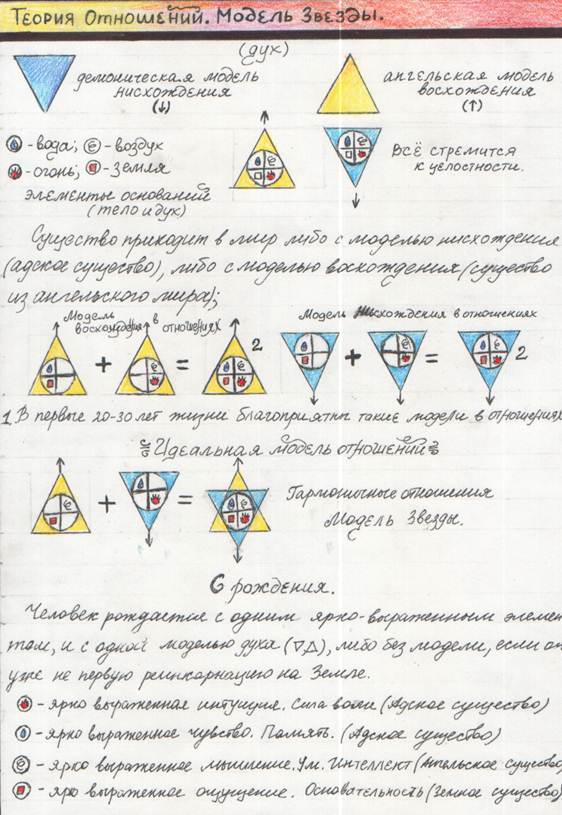 Теория Отношений. Модель Звезды.
(дух)
демоническая модель нисхождения (↓)
ангельская модель восхождения (↑)
- вода; - воздух
- огонь; - земля
элементы оснований
(тело и дух)
Всё стремится
к целостности.
Существо приходит в мир либо с моделью нисхождения
(адское существо), либо с моделью восхождения (существо
из ангельского мира);
Модель восхождения в отношениях
Модель Нисхождения в отношениях
+ = 2
+ = 2
1. В первые 20-30 лет жизни благоприятны такие модели в отношениях
Идеальная модель отношений
+ =
Гармоничные отношения
Модель Звезды.
С рождения.
Человек рождается с одним ярко-выраженным элемен
том, и с одной моделью духа (▽△), либо без модели, если он
уже не первую реинкарнацию на Земле.
- ярко выраженная интуиция. Сила воли (Адское существо)
- ярко выраженное чувство. Память. (Адское существо)
- ярко выраженное мышление. Ум. Интеллект (Ангельское существо)
- ярко выраженное ощущение. Основательность (Земное существо)